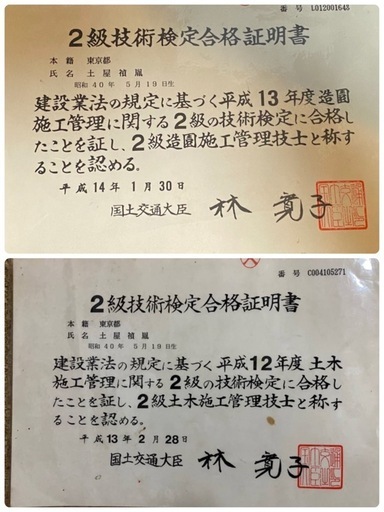 番号 L012001648
2級技術検定合格証明書
本籍 東京都
氏名 土屋禎胤
昭和40年 5月19日生
建設業法の規定に基づく平成13年度造園
施工管理に関する2級の技術検定に合格し
たことを証し、2級造園施工管理技士と称す
ることを認める。
平成14年1月30日
国土交通大臣 林 寛子
番号 C004105271
2級技術検定合格証明書
本籍 東京都
氏名 土屋禎胤
昭和40年 5月19日生
建設業法の規定に基づく平成12年度 土木
施工管理に関する2級の技術検定に合格し
たことを証し、2級土木施工管理技士と称す
ることを認める。
平成13年2月28日
国土交通大臣 林 寛子